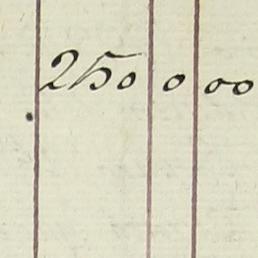 250 0 00